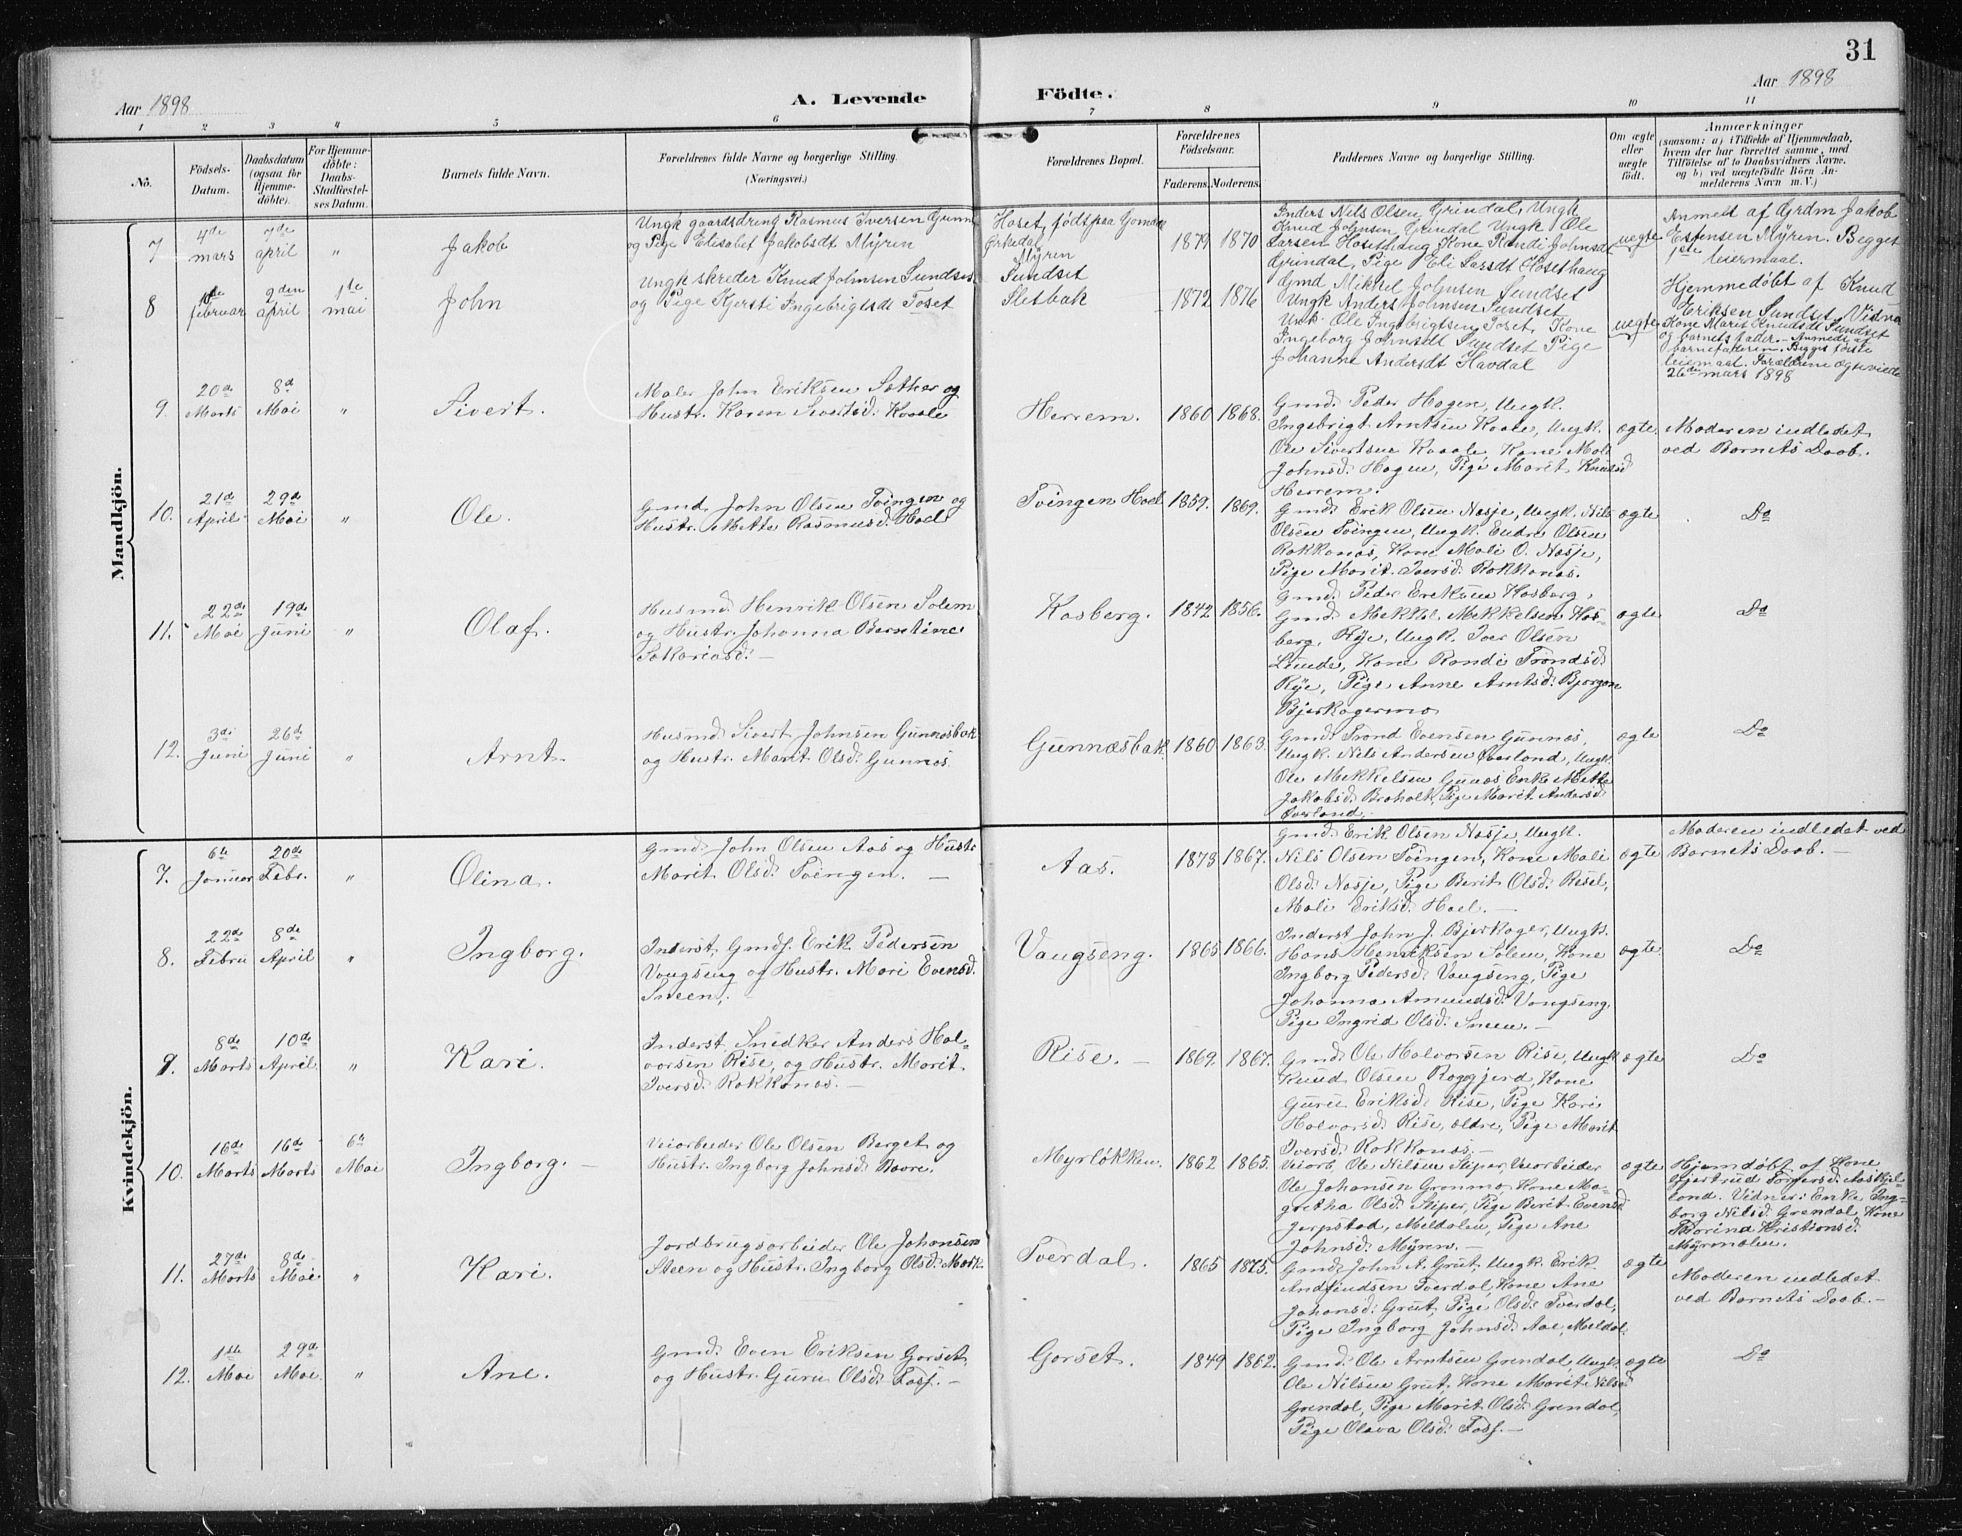 31
Aar 1898
A. Levende
Födte.
Aar 1898
1 2 3 4 5 6 7 8 9 10 11
No.
Födsels-
Datum.
Daabsdatum
(ogsaa for
Hjemme-
döbte).
For Hjemme-
döbte:
Daabs-
Stadfæstel-
ses Datum.
Barnets fulde Navn.
Forældrenes fulde Navne og borgerlige Stilling.
(Næringsvei.)
Forældrenes Bopæl.
Forældrenes
Födselsaar.
Faderens. Moderens.
Faddernes Navne og borgerlige Stilling.
Om ægte
eller
uægte
födt.
Anmærkninger
(saasom: a) i Tilfælde af Hjemmedaab,
hvem der har forrettet samme, med
Tilföielse af to Daabsvidners Navne,
og b) ved uægtefödte Börn An-
melderens Navn m. V.)
Mandkjön.
7
4de
mars
7de
april
"
Jakob
Ungk gaardsdreng Rasmus Iversen
og Pige Elisabet Jakobsdt Myren
Hoset, født paa
Ørkedal
Myren
1879 1870
Inders Nils Olsen Grindal, Ungk
Knud Johnsen Grindal Ungk Ole
Larsen Hosethaug Kone Randi Johnsdt
Grindal, Pige Eli Larsdt Hosethaug
uegte
Anmelt af Grdm Jakob
Estensen Myren. Begges
1ste leiermaal.
8
februar
2den
april
1ste
mai
John
Ungk skreder Knud Johnsen Sundset
og Pige Kjersti Ingebrigtsdt Toset
Sundset
Sletbak
1872 1876
Gmd Mikkel Johnsen Sundset
Ungk Anders Johnsen Sundset
Ungk. Ole Ingebrigtsen Toset, Kone
Ingeborg Johnsdt Sundset Pige
Johanne Andersdt Havdal
uegte
Hjemmedøbt af Knud
Eriksen Sundset, Vidne
Kone Marit Knudsdt Sundset
og barnets fader. Anmeldt af
barnefaderen. Begges første
leiermaal. Forældrene ægteviede
26de mars 1898
9.
20de
Marts
8d
Mai
"
Sivert.
Maler John Eriksen Sæther og
Hustr. Karen Sivertsd: Kvaale
Herrem.
1860 1868.
Gmd: Peder Hagen, Ungk.
Ingebrigt Arntsen Kvale, Ungk.
Ole Sivertsen Kvaale, Kone Mali
Johnsd: Hagen, Pige Marit Knudsd
Herrem.
ægte.
Moderen indledet
ved Barnets Daab.
10.
21de
April
29de
Mai
"
Ole.
Gmd. John Olsen Tvingen og
Hustr. Mette Rasmusd: Hoel
Tvingen Hoel
1859. 1869.
Gmd: Erik Olsen Nasje, Ungk. Nils
Olsen Tvingen, Ungk. Endre Olsen
Rokkones, Kone Mali O. Nasje,
Pige Marit Iversd: Rokkones.
ægte
Do
11.
22de
Mai
19de
Juni
"
Olaf.
Husmd. Henrik Olsen Solem
og Hustr. Johanna Berntine
Sakariasd: —
Kosberg.
1842 1856.
Gmd: Peder Eriksen Kosberg,
Gmd: Mekkel Mekkelsen Kos-
berg, Rye, Ungk. Iver Olsen
Lunde, Kone Randi Trondsd:
Rye, Pige Anne Arntsd: Bjørgen
Bjerkagermo
ægte
Do
12.
3di
Juni
26de
Juni
"
Arnt.
Husmd: Sivert Johnsen Gunnesbak
og Hustr. Marit Olsd: Gunnes
Gunnæsbak
1860 1863.
Gmd: Trond Evensen Gunnes,
Ungk. Nils Andersen Øverland, Ungk.
Ole Mekkelsen Gunæs, Enke Mette
Jakobsd: Braholt, Pige Marit Andersd:
Øverland.
ægte
Do
Kvindekjön.
7.
6te
Januar
20de
Febr.
"
Olina.
Gmd: John Olsen Aas og Hustr
Marit Olsd: Tvingen. —
Aas.
1873 1867.
Gmd: Erik Olsen Nasje, Ungk.
Nils Olsen Tvingen, Kone Mali
Olsd: Nasje, Pige Berit Olsd: Risel,
Mali Eriksd: Hoel. —
ægte
Moderen indledet ved
Barnets Daab. —
8.
22de
Febru
8de
April
"
Ingborg.
Inderst, Gmds. Erik Pedersen
Vangseng og Hustr. Mari Evensd.
Sneen.
Vangseng.
1865 1866.
Inderst John J. Bjerkager, Ungk.
Hans Henriksen Solem, Kone
Ingborg Pedersd: Vangseng, Pige
Johanna Amundsd: Vangseng,
Pige Ingrid Olsd: Sneen. —
ægte.
Do
9.
8de
Marts
10de
April
"
Kari.
Inderst, Snedker Anders Hal-
vorsen Rise, og Hustr. Marit
Iversd: Rokkones. —
Rise. —
1869. 1867.
Gmd: Ole Halvorsen Rise, Ungk
Knud Olsen Roggjerd, Kone
Guru Eriksd: Rise, Pige Kari
Halvorsd: Rise, ældre, Pige Marit
Iversd: Rokkones. —
ægte
Do
10.
16de
Marts
16de
Marts
6te
Mai
Ingborg. —
Veiarbeider Ole Olsen Berget og
Hustr. Ingborg Johnsd:
Myrløkken.
1862 1865.
Veiarb. Ole Nilsen Stiper, Veiarbeider
Ole Johansen Grønmo, Kone Ma-
gretha Olsd: Stiper, Pige Berit Evensd
Jerpstad, Meldalen, Pige Ane
Johnsd: Myren. —
ægte
Hjemdøbt af Kone
Gjertrud Torgersd: Aaskjel-
land. Vidner: Enke Ing-
borg Nilsd: Grendal, Kone
Thorina Kristiansd:
Myrmælen.
11.
27de
Marts
8de
Mai
"
Kari.
Jordbrugsarbeider Ole Johansen
Steen og Hustr. Ingborg Olsd: Mærk
Tverdal.
1865 1875.
Gmd: John A. Grut, Ungk. Erik
Andfindsen Tverdal, Kone Ane
Johansd: Grut, Pige Olsd: Tverdal,
Pige Ingborg Johnsd: Aae, Meldal.
ægte
Moderen indledet
ved Barnets Daab. —
12.
1ste
Mai
29de
Mai.
"
Ane.
Gmd: Even Eriksen Gorset,
og Hustr. Guru Olsd: Fosf. —
Gorset.
1849 1862.
Gmd: Ole Arntsen Grendal, Ungk
Ole Nilsen Grut, Kone Marit Nilsd
Grendal, Pige Marit Olsd: Grendal,
Pige Olava Olsd: Fosf. —
ægte
Do